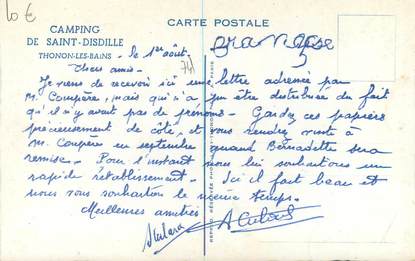 10 €
CARTE POSTALE
CAMPING
DE SAINT-DISDILLE
THONON-LES-BAINS
le 1er août.
74
Chers amis.
Je viens de recevoir ici une lettre adressée par
M. Coupère, mais qui n'a pu être distribuée du fait
qu'il n'y avait pas de prénoms. Gardez ces papiers
précieusement de côté, et vous rendrez visite à
M. Coupère en septembre quand Bernadette sera
remise. Pour l'instant nous lui souhaitons un
rapide rétablissement. Ici il fait beau et
nous vous souhaitons le même temps.
Meilleures amitiés